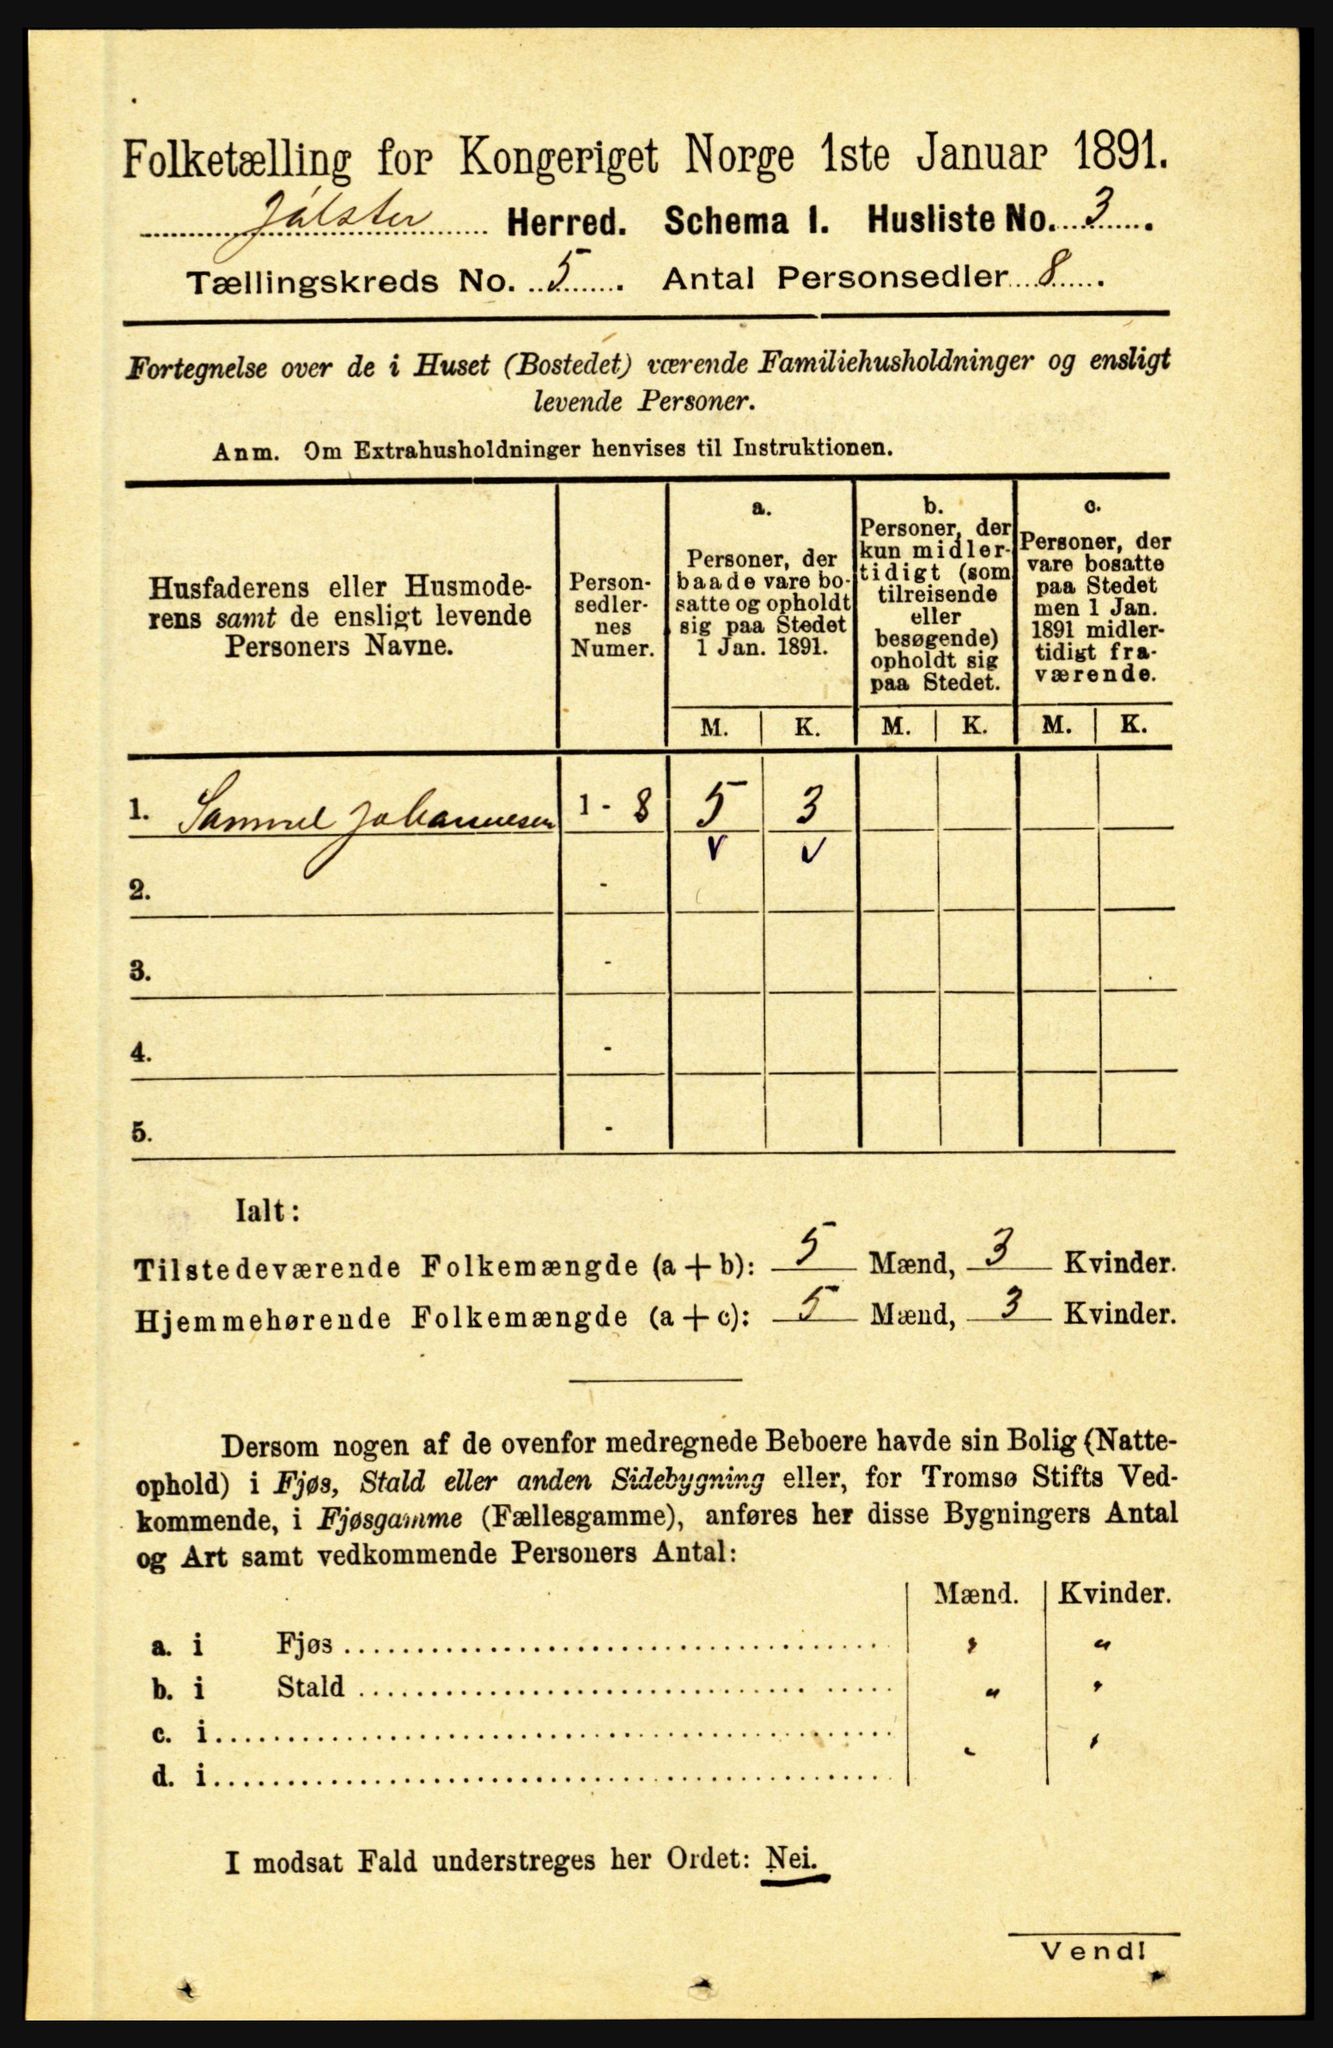 Folketælling for Kongeriget Norge 1ste Januar 1891.
Jølster Herred. Schema I. Husliste No. 3.
Tællingskreds No. 5. Antal Personsedler 8.
Fortegnelse over de i Huset (Bostedet) værende Familiehusholdninger og ensligt
levende Personer.
Anm. Om Extrahusholdninger henvises til Instruktionen.
Husfaderens eller Husmode-
rens samt de ensligt levende
Personers Navne.
Person-
sedler-
nes
Numer.
a.
Personer, der
baade vare bo-
satte og opholdt
sig paa Stedet
1 Jan. 1891.
b.
Personer, der
kun midler-
tidigt (som
tilreisende
eller
besøgende)
opholdt sig
paa Stedet.
c.
Personer, der
vare bosatte
paa Stedet
men 1 Jan.
1891 midler-
tidigt fra-
værende.
M. K. M. K. M. K.
1. Samuel Johannesen 1 - 8 5 3
2. -
3. -
4. -
5. -
Ialt:
Tilstedeværende Folkemængde (a+b): 5 Mænd, 3 Kvinder.
Hjemmehørende Folkemængde (a+c): 5 Mænd, 3 Kvinder.
Dersom nogen af de ovenfor medregnede Beboere havde sin Bolig (Natte-
ophold) i Fjøs, Stald eller anden Sidebygning eller, for Tromsø Stifts Ved-
kommende, i Fjøsgamme (Fællesgamme), anføres her disse Bygningers Antal
og Art samt vedkommende Personers Antal:
Mænd. Kvinder.
a. i Fjøs " "
b. i Stald " "
c. i " "
d. i
I modsat Fald understreges her Ordet: Nei.
Vend!